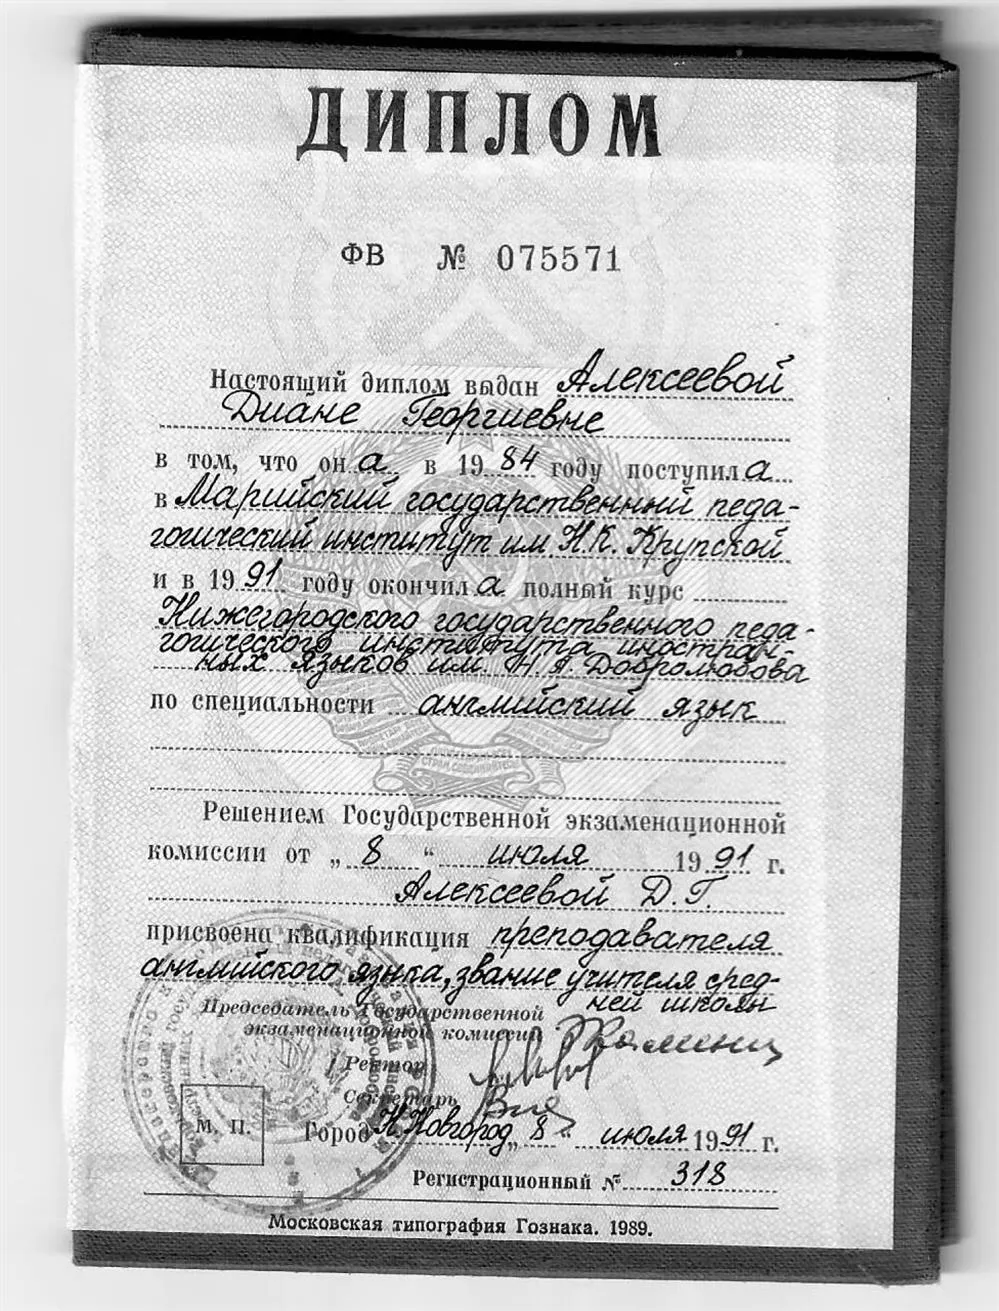 ДИПЛОМ
ФВ № 075571
Настоящий диплом выдан Алексеевой
Диане Георгиевне
в том, что он а в 19 84 году поступил а
в Марийский государственный педа-
гогический институт им. Н.К. Крупской
и в 19 91 году окончил а полный курс
Нижегородского государственного педа-
гогического института иностран-
ных языков им. Н А. Добролюбова
по специальности английский язык
Решением Государственной экзаменационной
комиссии от „ 8 “ июля 19 91 г.
Алексеевой Д.Г.
присвоена квалификация преподавателя
английского языка, звание учителя сред-
ней школы
Председатель Государственной
экзаменационной комиссии
Ректор
Секретарь
М. П.
Город Н.Новгород „ 8 “ июля 19 91 г.
Регистрационный № 318
Московская типография Гознака. 1989.